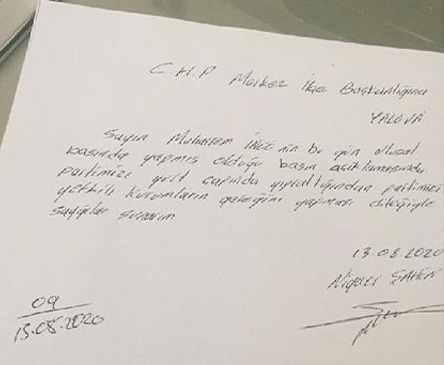 C.H.P. Merkez İlçe Başkanlığına
YALOVA
Sayın Muharrem İNCE'nin bu gün ulusal
basında yapmış olduğu basın açıklamasında
partimizi yurt çapında yıprattığından partimizi
yetkili kurumların gereğini yapması dileğiyle
saygılar sunarım
13.08.2020
ŞAHİN
09
13.08.2020